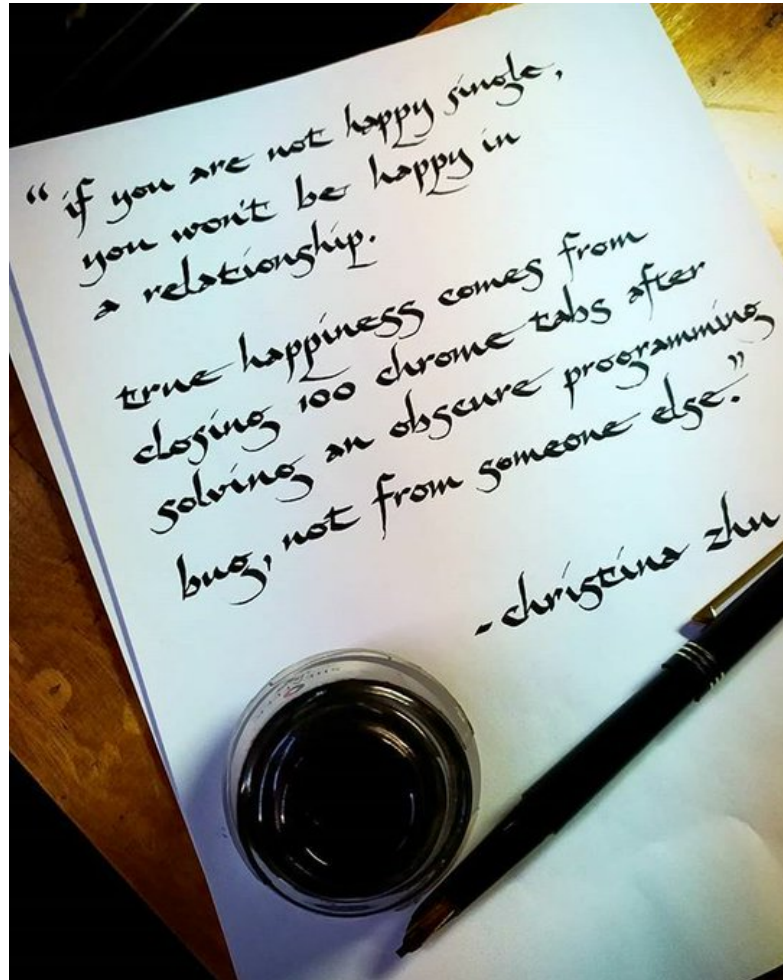 “ if you are not happy single,
you won't be happy in
a relationship.
true happiness comes from
closing 100 chrome tabs after
solving an obscure programming
bug, not from someone else.”
- christina zhu